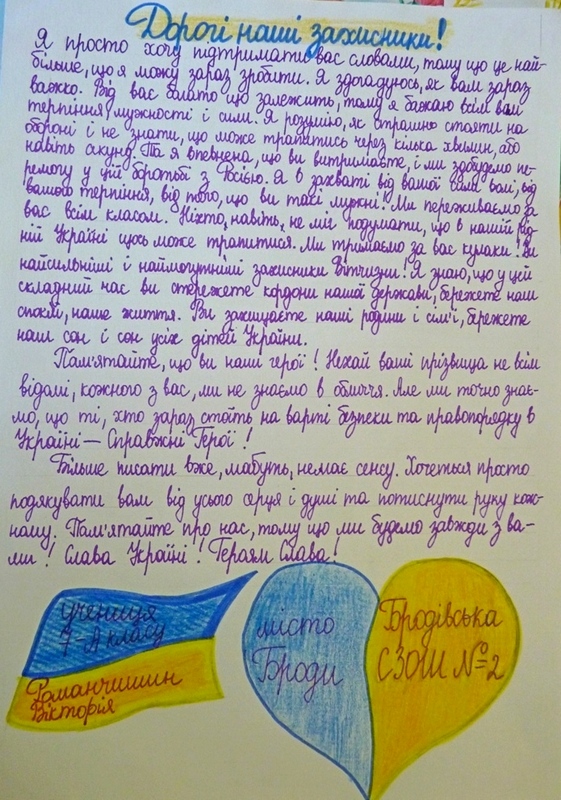 Дорогі наші захисники!
Я просто хочу підтримати вас словами, тому що це най-
більше, що я можу зараз зробити. Я здогадуюсь, як вам зараз
важко. Від вас багато що залежить, тому я бажаю всім вам
терпіння, мужності і сили. Я розумію, як страшно стояти на
обороні і не знати, що може трапитись через кілька хвилин, або
навіть секунд. Та я впевнена, що ви витримаєте, і ми здобудемо пе-
ремогу у цій боротьбі з Росією. Я в захваті від вашої сили волі, від
вашого терпіння, від того, що ви такі мужні! Ми переживаємо за
вас всім класом. Ніхто, навіть, не міг подумати, що в нашій рід-
ній Україні щось може трапитися. Ми тримаємо за вас кулаки! Ви
найсильніші і наймогутніші захисники Вітчизни! Я знаю, що у цей
складний час ви стережете кордони нашої держави, бережете наш
спокій, наше життя. Ви захищаєте наші родини і сім'ї, бережете
наш сон і сон усіх дітей України.
Пам'ятайте, що ви наші герої! Нехай ваші прізвища не всім
відомі, кожного з вас, ми не знаємо в обличчя. Але ми точно знає-
мо, що ті, хто зараз стоїть на варті безпеки та правопорядку в
Україні — Справжні Герої!
Більше писати вже, мабуть, немає сенсу. Хочеться просто
подякувати вам від усього серця і душі та потиснути руку кож-
ному. Пам'ятайте про нас, тому що ми будемо завжди з ва-
ми! Слава Україні! Героям Слава!
учениця
7-А класу
Романчишин
Вікторія
місто
Броди
Бродівська
СЗОШ №2